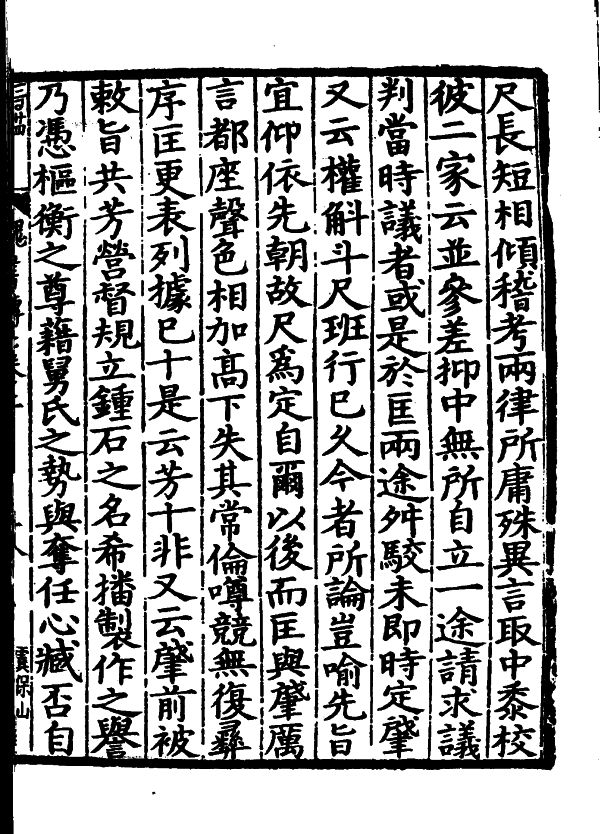 尺長短相傾稽考兩律所庸殊異言取中黍校
彼二家云並參差抑中無所自立一途請求議
判當時議者或是於匡兩途舛駮未即時定肇
又云權斛斗尺班行已久今者所論豈喻先旨
宜仰依先朝故尺爲定自爾以後而匡與肇厲
言都座聲色相加高下失其常倫噂競無復彛
序匡更表列據已十是云芳十非又云肇前被
敕旨共芳營督規立鍾石之名希播製作之譽
乃憑樞衡之尊藉舅氏之勢與奪任心臧否自